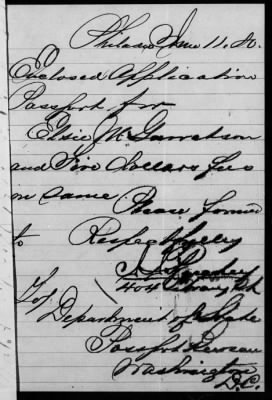 Philada June 11. 80.
Enclosed Application
Passport for
Elsie M Garretson
and Five Dollars fees
on same Please forward
to Respectfully
404 Library St
To/
Department of State
Passport Bureau
Washington
D.C.